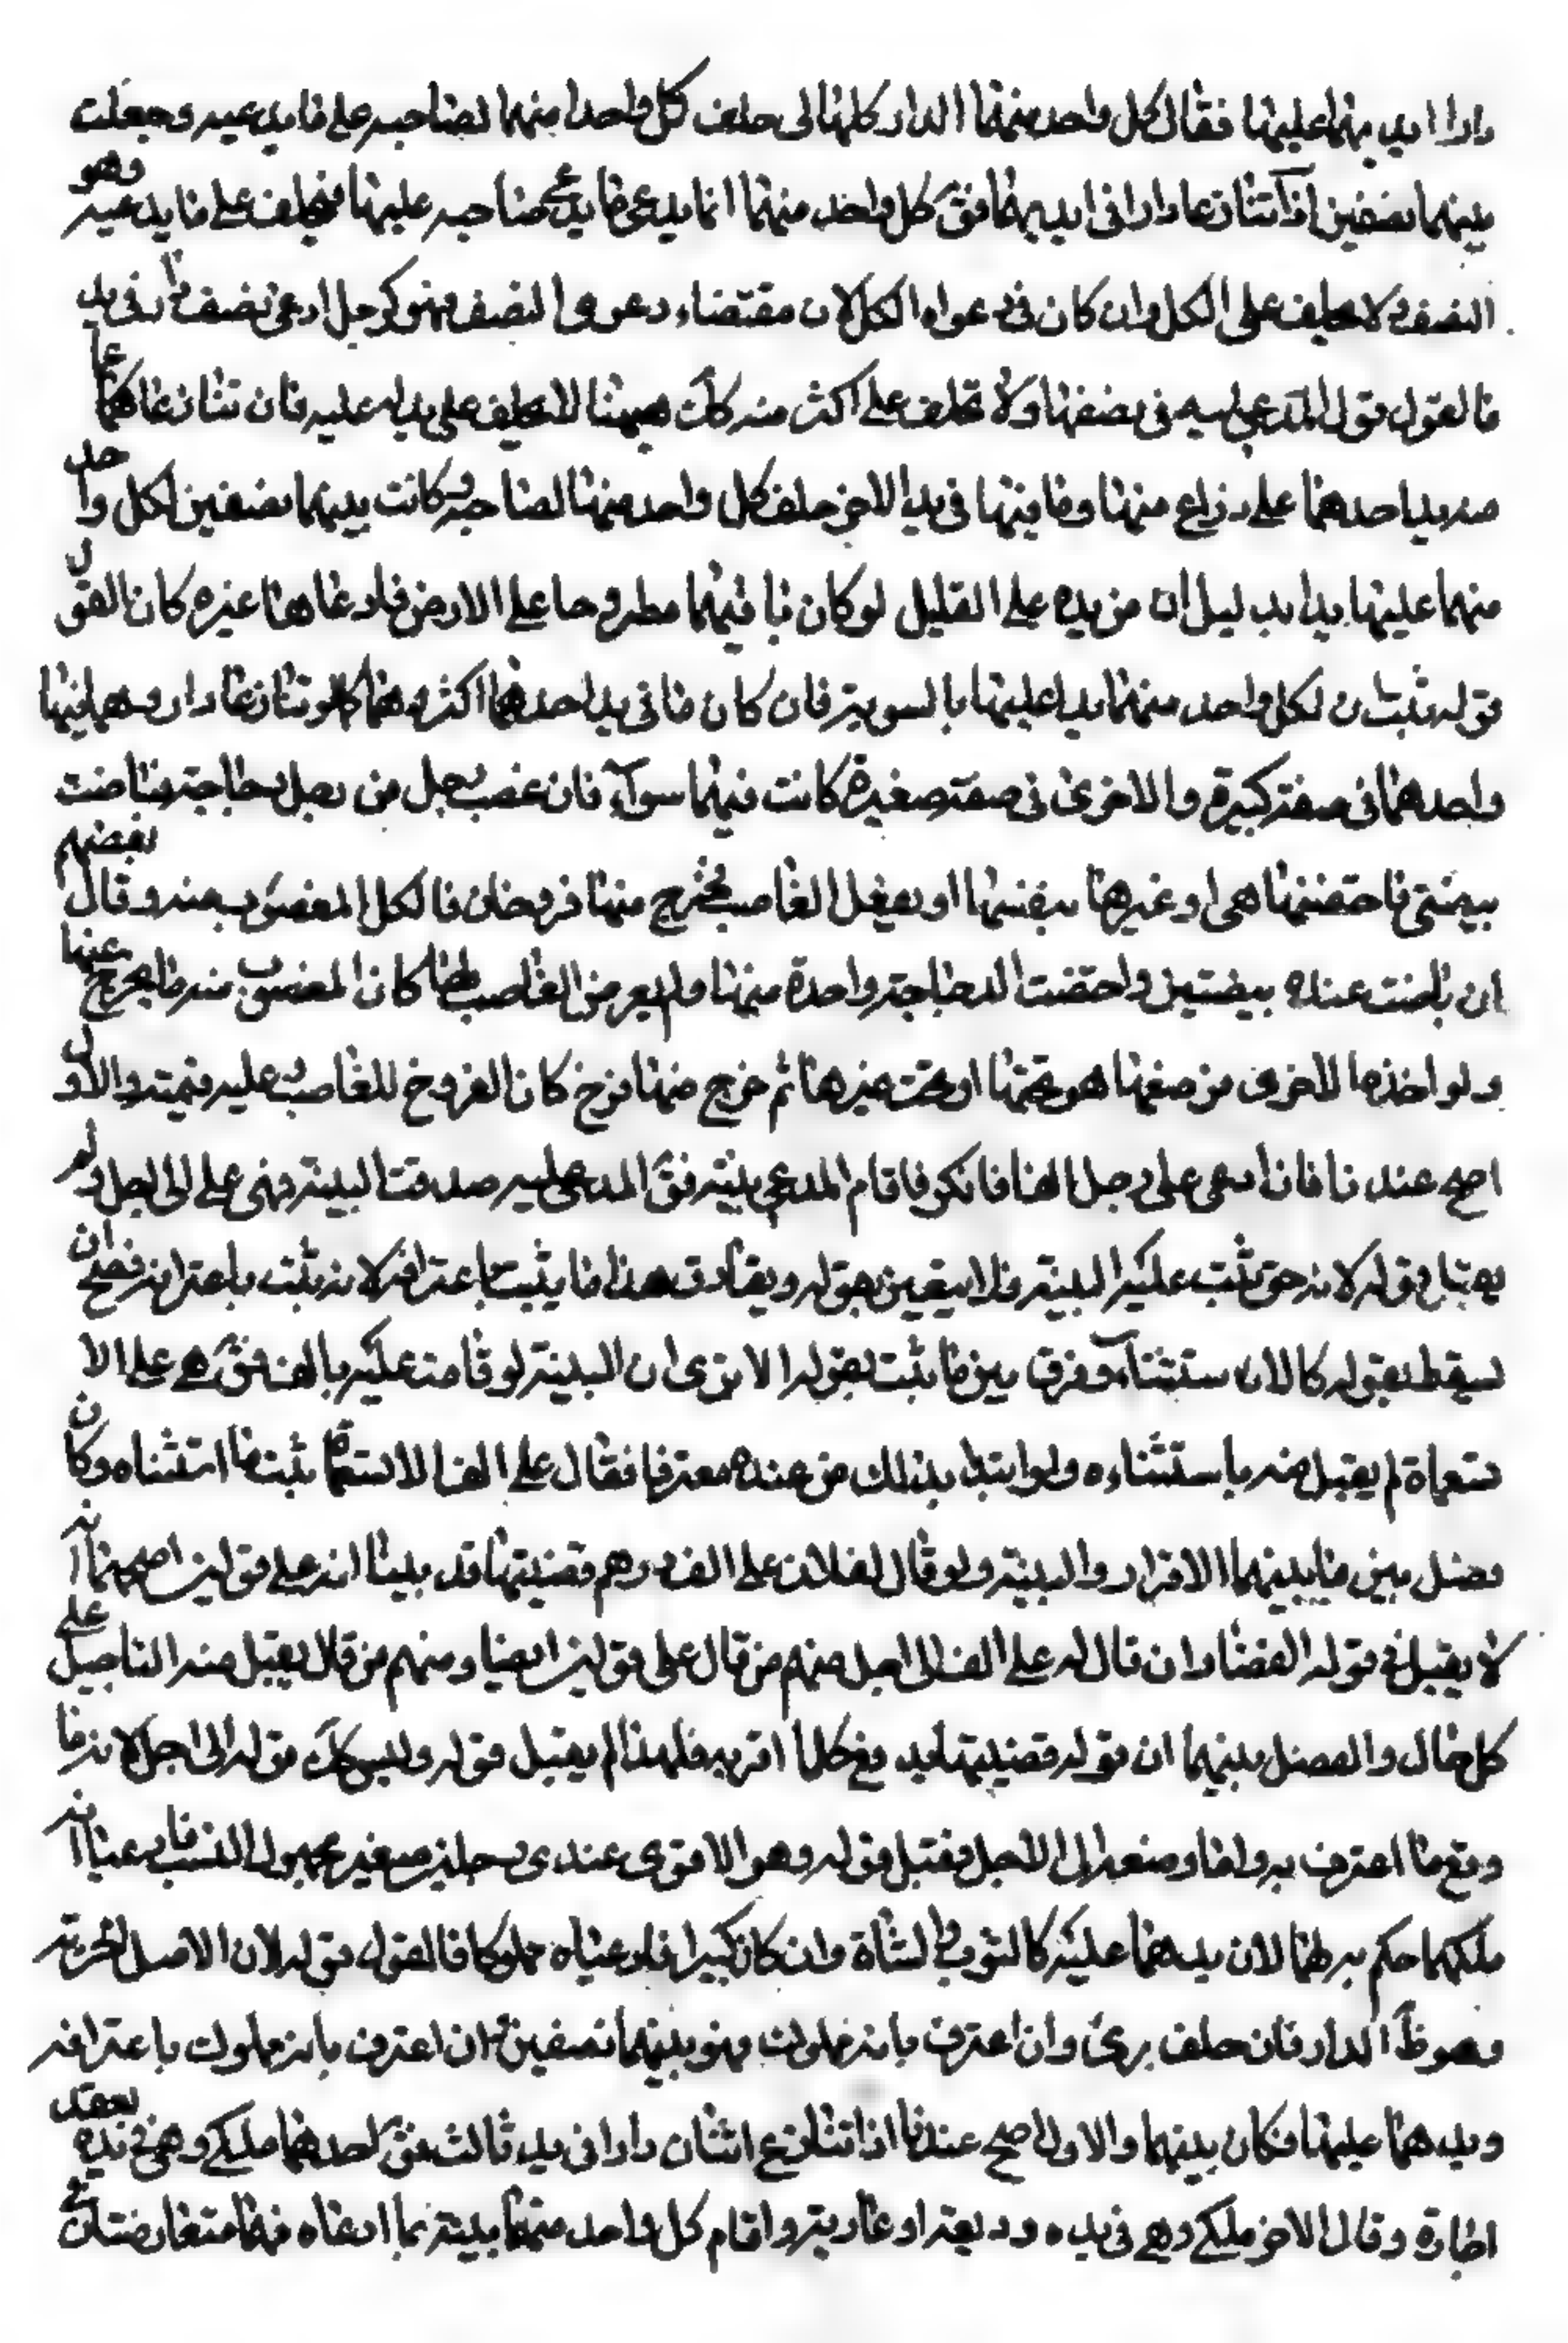 دارا ايديهما عليها فقال كل واحد منهما الدار كلها لى حلف كل واحد منهما لصاحبه على ما يدعيه وجعلت
بينهما نصفين اذا تنازعا دارا فى ايديهما فق كل واحد منهما انما يدعى ما يدعى صاحبه عليها فيحلف على ما يدعيه وهو
النصف ولا يحلف على الكل وان كان فى دعواه الكل لان مقتضاء دعوى النصف فهو كرجل ادعى نصف دار فى يد
فالقول قول المدعى عليه فى نصفها ولا يحلف على اكثر منه كك هيهنا لا يحلف على يدا عليه فان تنازعا عمامة
يد احدهما على ذراع منها وباقيها فى يد الاخر حلف كل واحد منهما لصاحبه وكانت بينهما نصفين لكل واحد
منهما عليها يدا بدليل ان من يده على القليل لو كان باقيهما مطروحا على الارض فادعاها غيره كان القول
قوله فثبت ان لكل واحد منهما يدا عليها بالسوية فان كان ما فى يد احدهما اكثر وهما كما لو تنازعا دارا وهما فيها
واحدهما فى صفة كبيرة والاخرى فى صفة صغيرة كانت فيهما سوآء فان غصب رجل من رجل دجاجة فباضت
بيضتى فاحتضنتها هى او غيرها بنفسها او بفعل الغاصب فخرج منها فروخان فالكل المغصوب منه وقال بعضهم
ان باضت عنده بيضتين واحتضنت الدجاجة واحدة منهما ولم يعرض الغاصب لها كان المغصوب منه ما يخرج عنها
ولو اخذ الاخرى فوضعها هو تحتها او تحت غيرها ثم خرج منها فرخ كان الفروخ للغاصب عليه قيمته والاول
اصح عندنا فان ادعى على رجل الفا فانكر فاقام المدعى بينة فق المدعى عليه صدقت البينة وهى على الى اجل ولم
يقبل قوله لانه حق ثبت عليه البينة فلا يتغير بقوله ويفارق هذا ما يثبت باعترافه لانه ثبت باعترافه فصح ان
يسقط بقوله كالاستثناء وفرق بين ما ثبت بقوله الا ترى ان البينة لو قامت عليه بالف فق هى على الا
تسعماة لم يقبل منه باستثناءه ولو ابتدا بذلك من عنده معترفا فقال على الف الا تسعماة ثبت ما استثناه وكان
فضل بين ما بينهما الاقرار والبينة ولو قال لفلان على الف درهم قضيتها قد بينا انه على قولين اصحهما انه
لا يقبل فى قوله القضا وان قال له على الف الى اجل منهم من قال على قولين ايضا ومنهم من قال يقبل منه التاجيل على
كل حال والفصل بينهما ان قوله قضيتها يرفع كلما اقر به فلهذا لم يقبل قوله وليس كك قوله الى اجل لانه ما
وقع ما اعترف به وانما وصفه الى الاجل فقبل قوله وهو الاقوى عندى رجلين صغير مجهول النسب فادعيا انه
ملكهما حكم به لهما لان يدهما عليه كالثوب والشاة وان كان كبيرا فادعياه مملوكا فالقول قوله لان الاصل الحرية
وهو ظ الدار فان حلف برئ وان اعترف بانه مملوك فهو بينهما نصفين ان اعترف بانه مملوك باعترافه
ويدهما عليها فكان بينهما والاول اصح عندنا اذا تنازع اثنان دارا فى يد ثالث فق احدهما ملكى وهى فى يده بعقد
اجارة وقال الاخر ملكى وهى فى يده وديعة او عارية واقام كل واحد منهما بينة بما ادعاه فهما متعارضتان فى